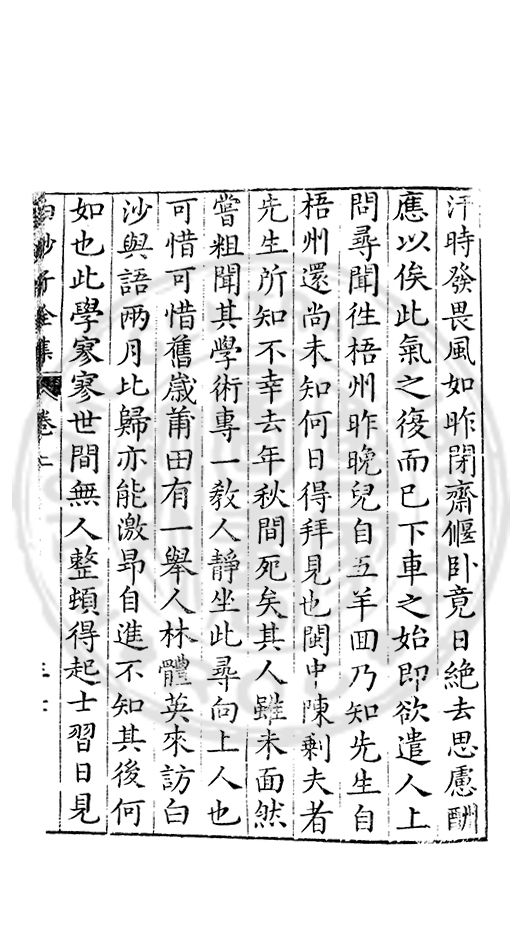 汗時發畏風如昨閉齋偃卧竟日絶去思慮酬
應以俟此氣之復而已下車之始即欲遣人上
問尋聞徃梧州昨晚兒自五羊囬乃知先生自
梧州還尚未知何日得拜見也閩中陳剩夫者
先生所知不幸去年秋間死矣其人雖未面然
嘗粗聞其學術專一敎人靜坐此尋向上人也
可惜可惜舊歲莆田有一舉人林體英來訪白
沙與語兩月比歸亦能激昻自進不知其後何
如也此學寥寥世間無人整頓得起士習日見
白沙子全集 卷二